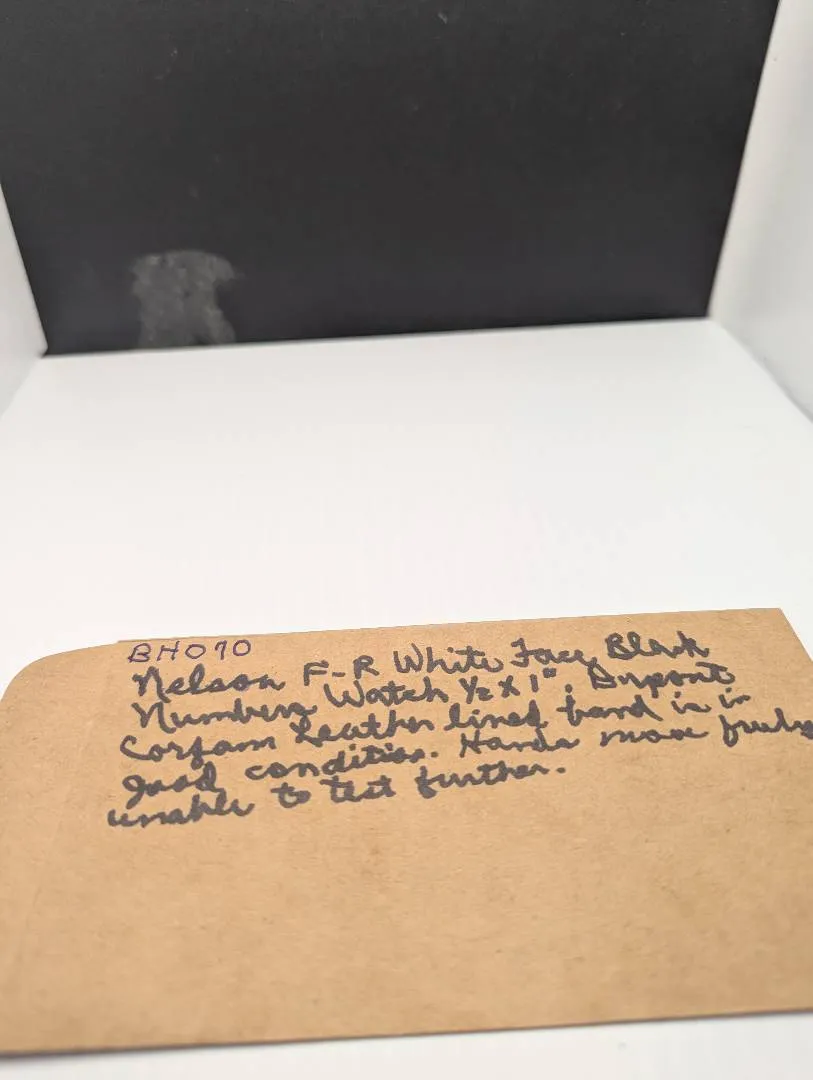 BH090
Nelson F-R White Face Black
Numbers Watch ½ X 1". Dupont
Corfam Leather lined band is in
good condition. Hands move freely
unable to test further.